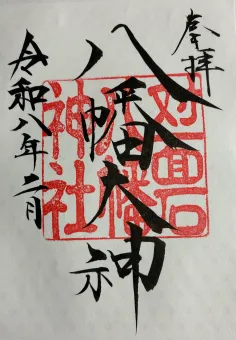 奉拝
八幡大神
対面石
八幡
神社
令和八年二月